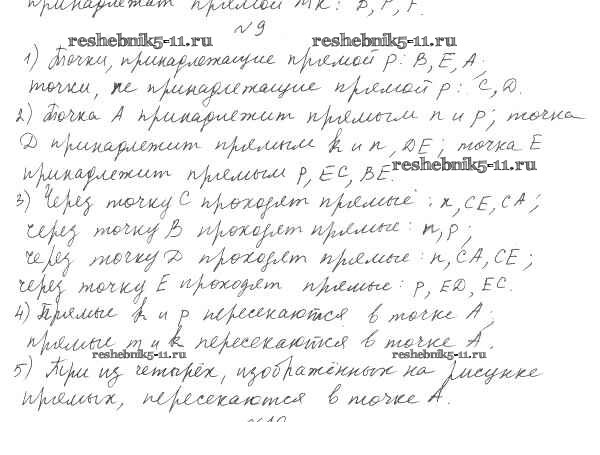 принадлежат прямой MK: B, P, F.
№9
reshebnik5-11.ru reshebnik5-11.ru
1) Точки, принадлежащие прямой p: B, E, A;
точки, не принадлежащие прямой p: C, D.
2) Точка A принадлежит прямым n и p; точка
D принадлежит прямым k и n, DE; точка E
принадлежит прямым p, EC, BE.
reshebnik5-11.ru
3) Через точку C проходят прямые: k, CE, CA;
через точку B проходят прямые: m, p;
через точку D проходят прямые: n, CA, CE;
через точку E проходят прямые: p, ED, EC.
4) Прямые k и p пересекаются в точке A;
прямые m и k пересекаются в точке A.
reshebnik5-11.ru reshebnik5-11.ru
5) Три из четырёх, изображённых на рисунке
прямых, пересекаются в точке A.